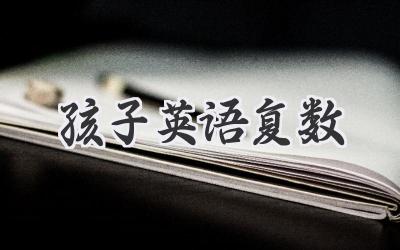 孩子英语复数